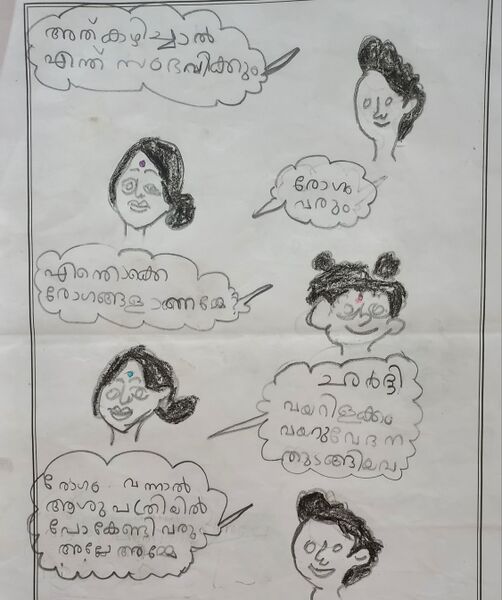 അത്കഴിച്ചാൽ
എന്ത് സംഭവിക്കും
രോഗം
വരും
എന്തൊക്കെ
രോഗങ്ങളാണമ്മേ?
ഛർദ്ദി
വയറിളക്കം
വയറുവേദന
തുടങ്ങിയവ
രോഗം വന്നാൽ
ആശുപത്രിയിൽ
പോകേണ്ടി വരും
അല്ലേ അമ്മേ